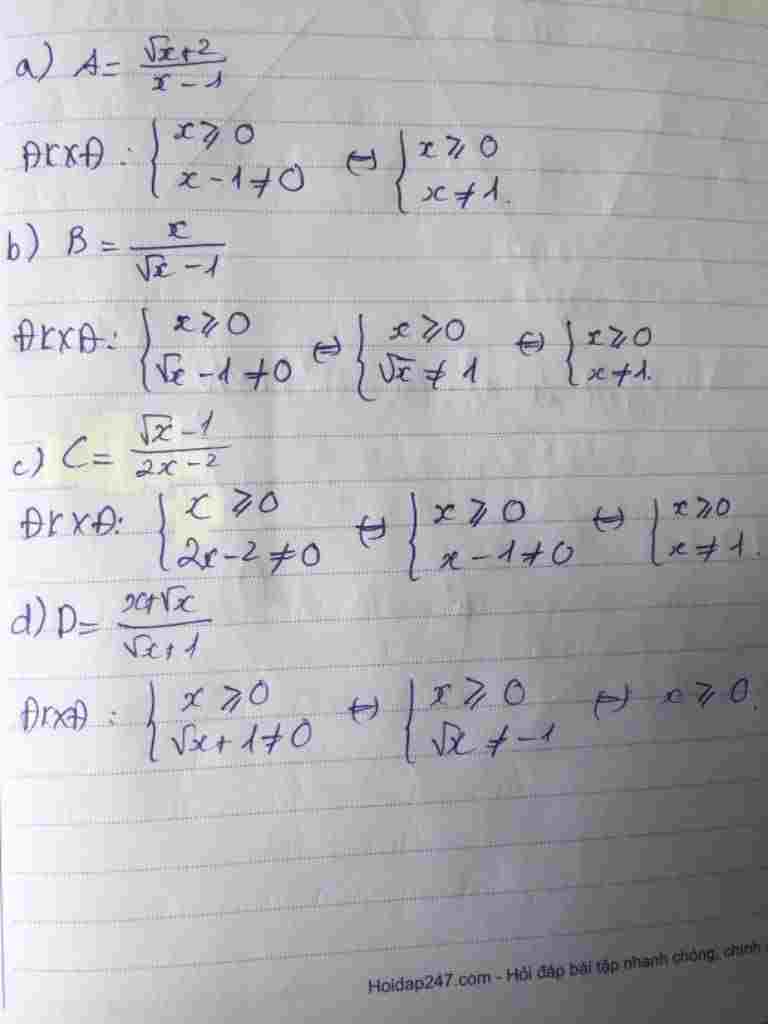 a) A = (√x+2)/(x-1)
ĐKXĐ: { x ≥ 0 ; x-1 ≠ 0 ⇔ { x ≥ 0 ; x ≠ 1.
b) B = x/(√x-1)
ĐKXĐ: { x ≥ 0 ; √x-1 ≠ 0 ⇔ { x ≥ 0 ; √x ≠ 1 ⇔ { x ≥ 0 ; x ≠ 1.
c) C = (√x-1)/(2x-2)
ĐKXĐ: { x ≥ 0 ; 2x-2 ≠ 0 ⇔ { x ≥ 0 ; x-1 ≠ 0 ⇔ { x ≥ 0 ; x ≠ 1.
d) D = (x+√x)/(√x+1)
ĐKXĐ: { x ≥ 0 ; √x+1 ≠ 0 ⇔ { x ≥ 0 ; √x ≠ -1 ⇔ x ≥ 0.
Hoidap247.com - Hỏi đáp bài tập nhanh chóng, chính